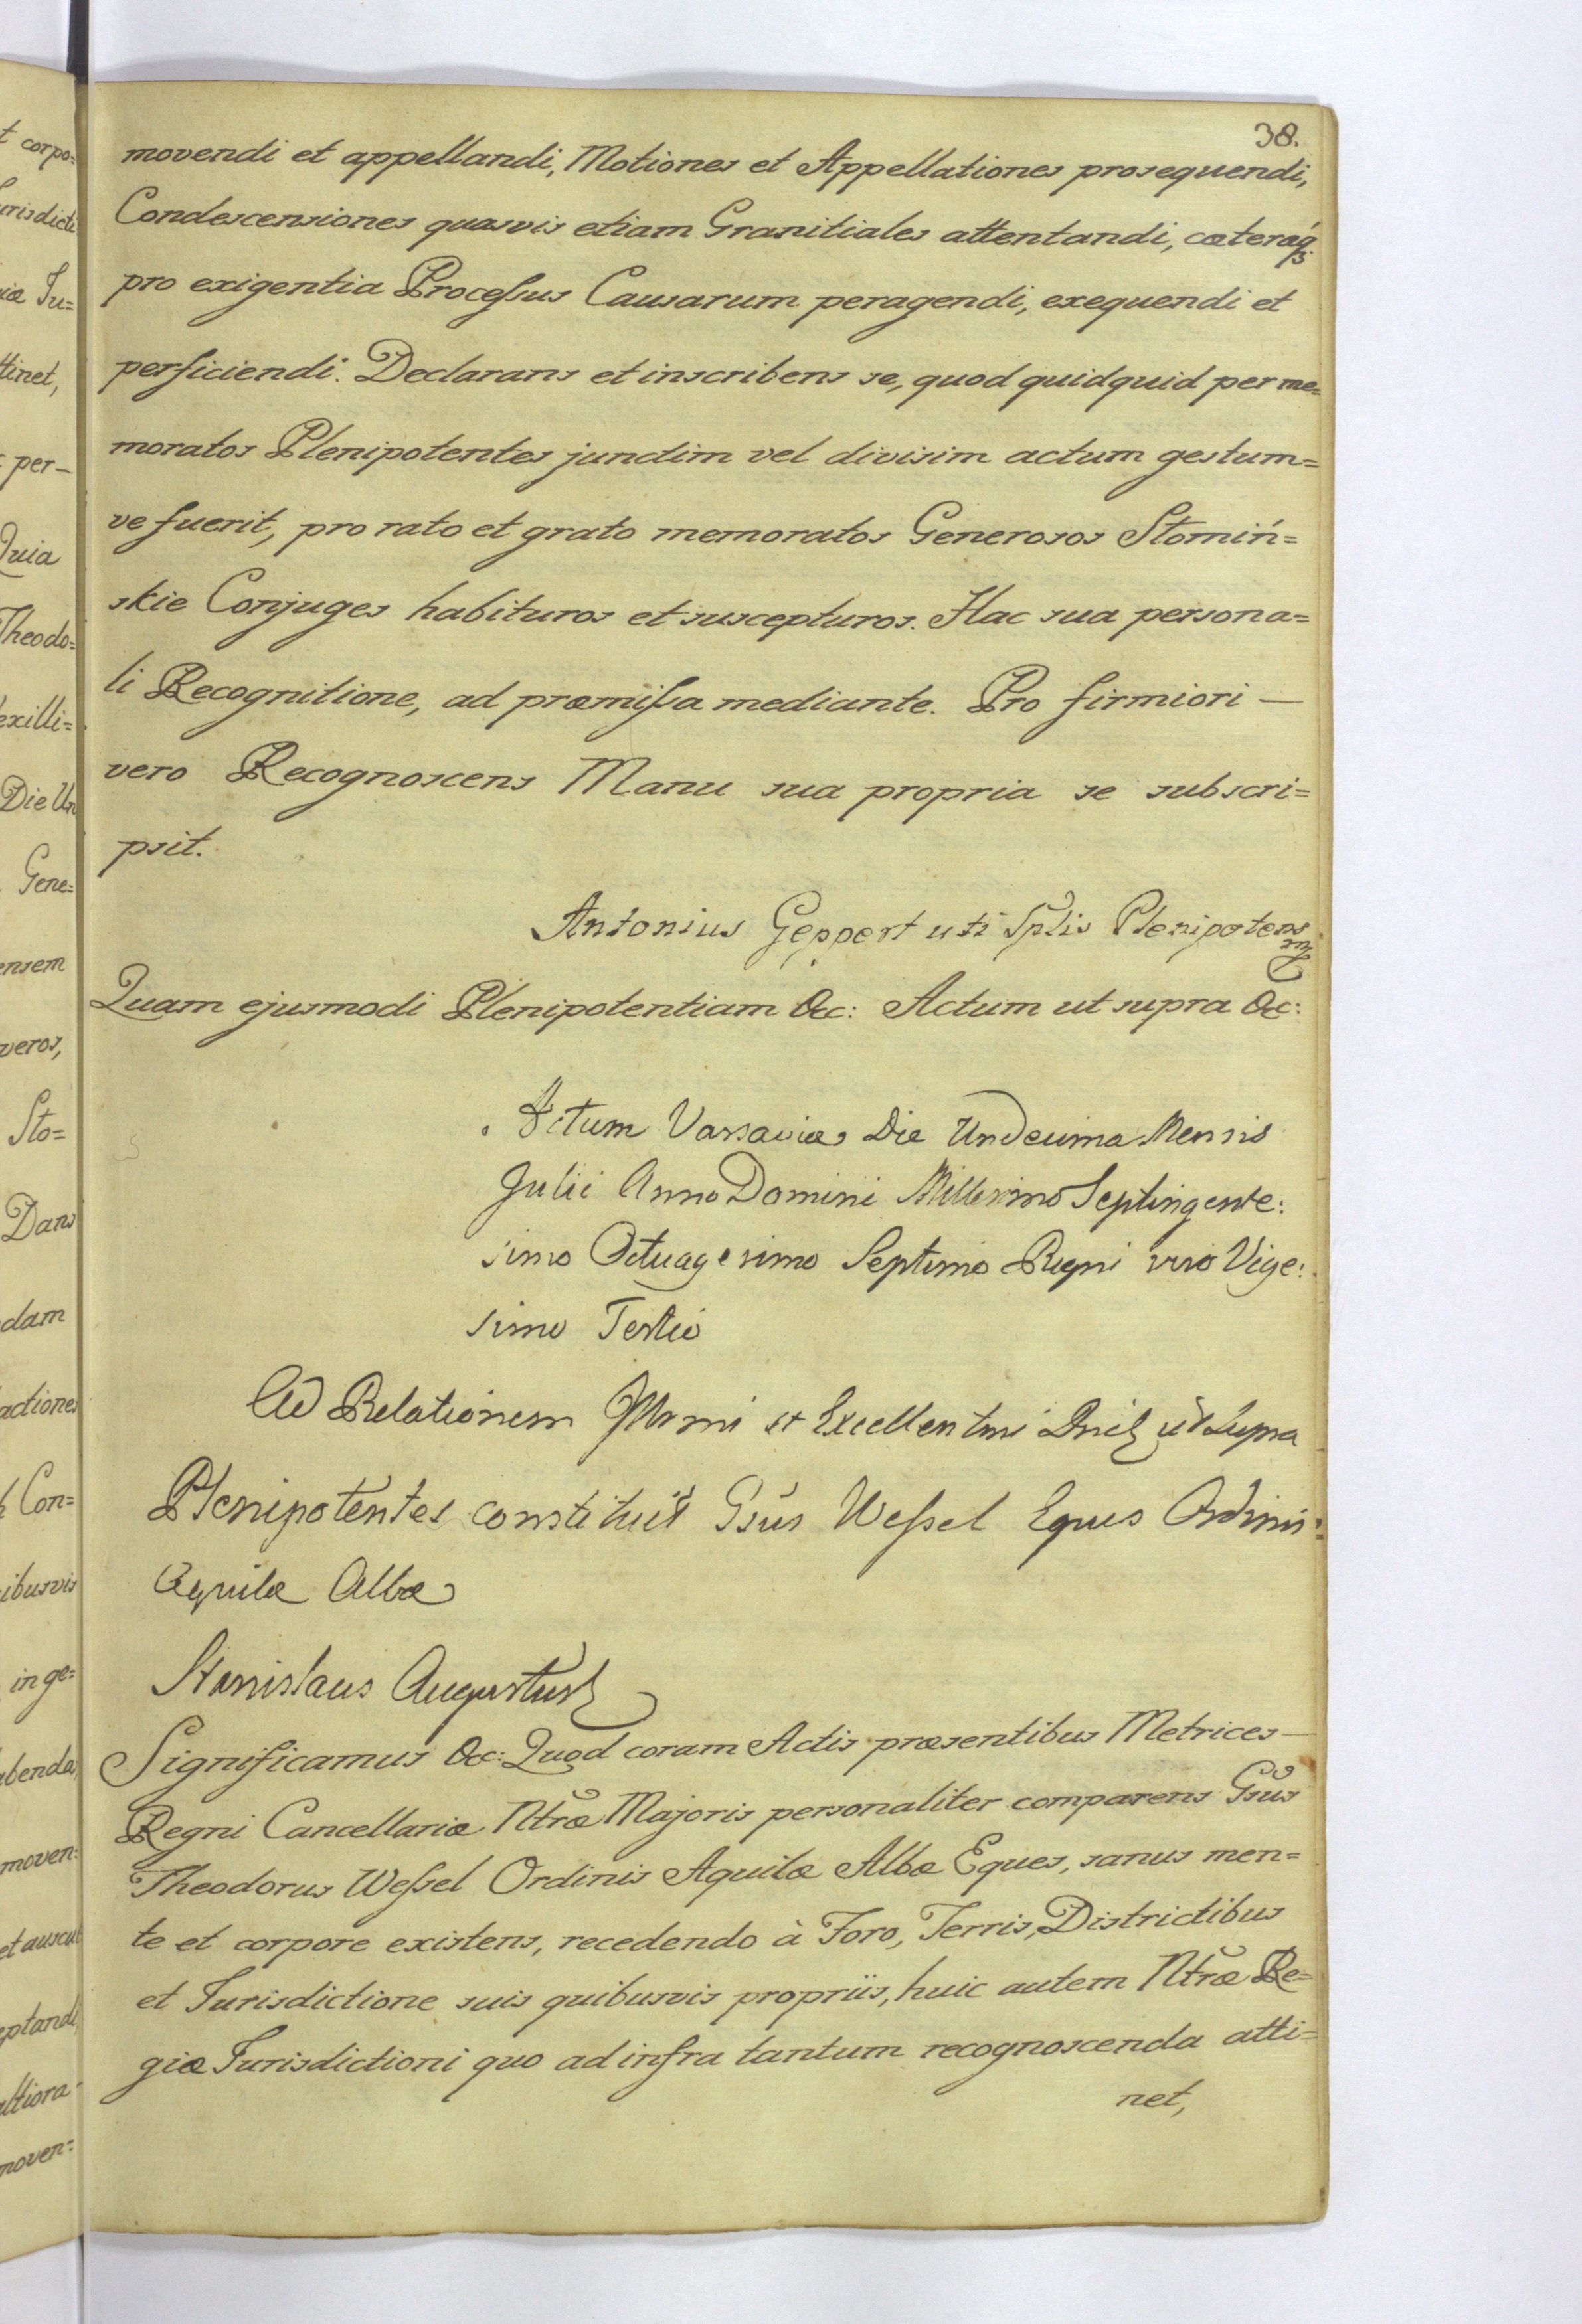 38.
movendi et appellandi, Motiones et Appellationes prosequendi,
Condescensiones quasvis etiam Granitiales attentandi, cæteraq;
pro exigentia Processus Causarum peragendi, exequendi et
perficiendi. Declarans et inscribens se, quod quidquid per me=
moratos Plenipotentes junctim vel divisim actum gestum=
ve fuerit, pro rato et grato memoratos Generosos Stomiń=
skie Conjuges habituros et suscepturos. Hac sua persona=
li Recognitione, ad præmissa mediante. Pro firmiori —
vero Recognoscens Manu sua propria se subscri=
psit.
Antonius Geppert uti Splis Plenipotens
Quam ejusmodi Plenipotentiam &c: Actum ut supra &c:
Actum Varsaviæ Die Undecima Mensis
Julii Anno Domini Millesimo Septingente:
simo Octuagesimo Septimo Regni vero Vige:
simo Tertio
Ad Relationem Illrmi et Excellentmi Dni ut Supra
Plenipotentes constituit Gsus Wessel Eques Ordinis
Aquilæ Albæ
Stanislaus Augustus
Significamus &c: Quod coram Actis præsentibus Metrices —
Regni Cancellariæ Ntræ Majoris personaliter comparens Gsus
Theodorus Wessel Ordinis Aquilæ Albæ Eques, sanus men=
te et corpore existens, recedendo à Foro, Terris, Districtibus
et Jurisdictione suis quibusvis propriis, huic autem Ntræ Re=
giæ Jurisdictioni quo ad infra tantum recognoscenda atti=
net,
t corpo=
urisdicti
iæ Ju=
ttinet,
per—
Quia
Theodo=
exilli=
Die Un
Gene=
ensem
veros,
Sto=
Dans
dam
actiones
Con=
ibusvis
in ge=
abenda,
moven=
et auscul
eptandi,
altiora
moven=